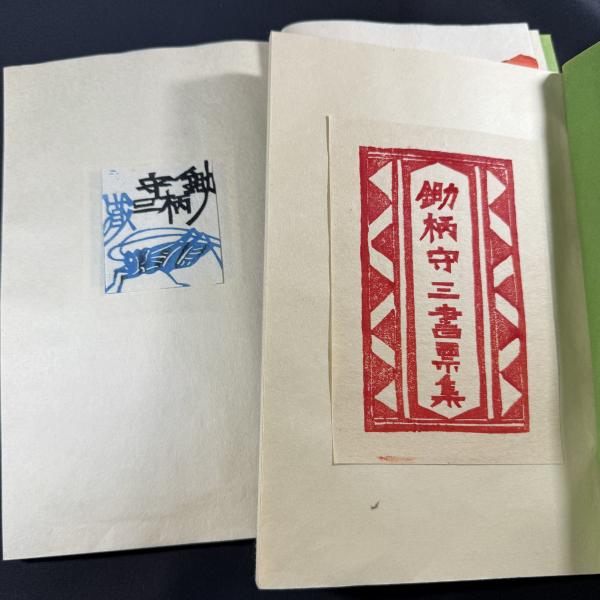 鋤柄
守三
蔵
鋤柄守三書票集